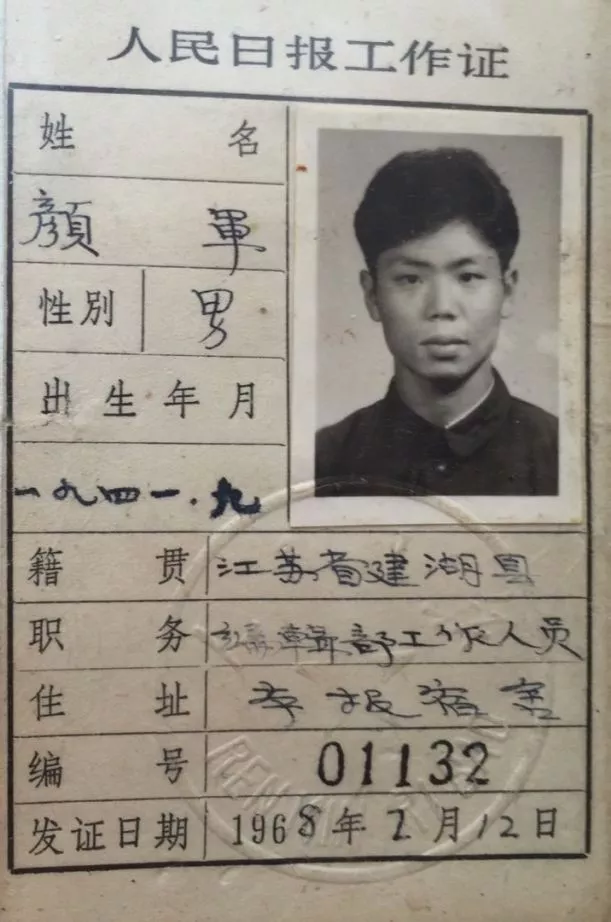 人民日报工作证
姓 名
顏 軍
性别 男
出生年月
一九四一.九
籍 贯 江苏省建湖县
职 务 编辑部工作人员
住 址 本报宿舍
编 号 01132
发证日期 1968年2月12日
REN